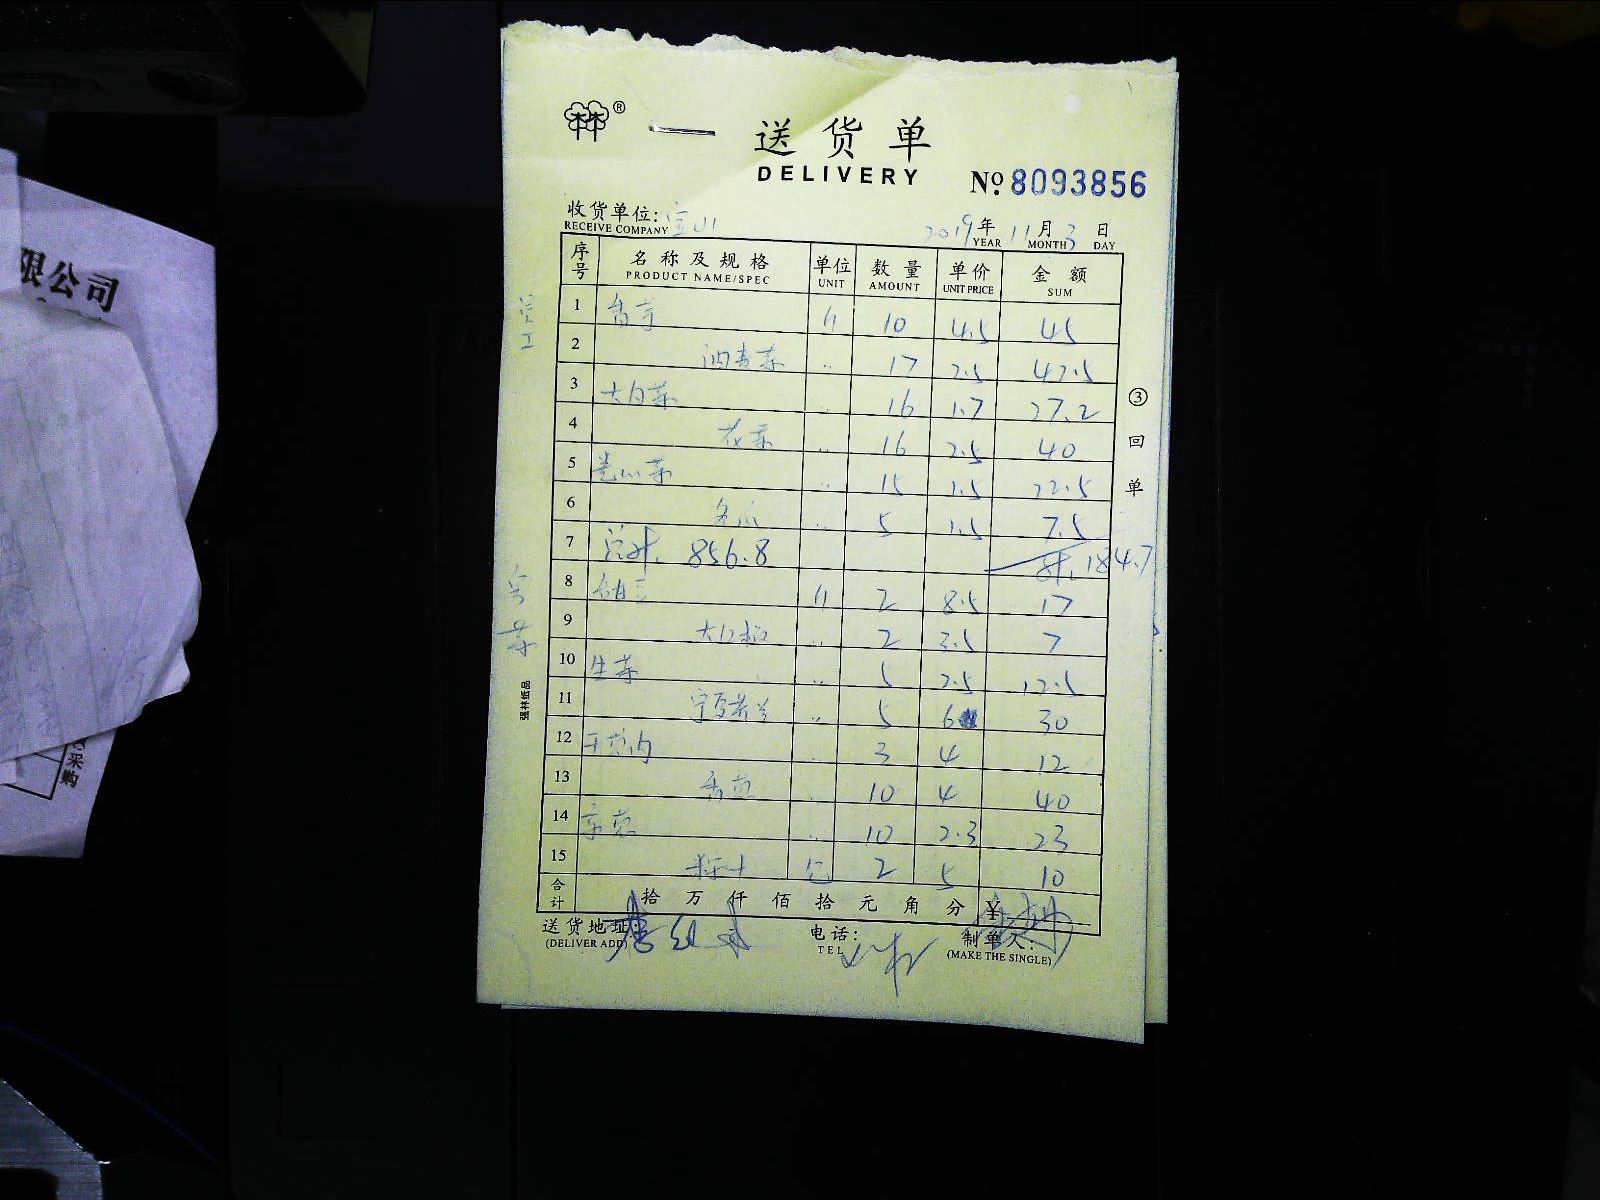 送货单
DELIVERY
№ 8093856
收货单位: 宝山
RECEIVE COMPANY
2019年 11月 3日
YEAR MONTH DAY
序号 名称及规格 单位 数量 单价 金额
PRODUCT NAME/SPEC UNIT AMOUNT UNIT PRICE SUM
员工
1 香芋 斤 10 4.5 45
2 油麦菜 〃 17 2.5 42.5
3 大白菜 〃 16 1.7 27.2
4 花菜 〃 16 2.5 40
5 卷心菜 〃 15 1.5 22.5
6 冬瓜 〃 5 1.5 7.5
7 总计. 856.8 计. 184.7
8 斤 2 8.5 17
9 〃 2 3.5 7
10 生菜 〃 5 2.5 12.5
11 〃 5 6 30
12 〃 3 4 12
13 〃 10 4 40
14 〃 10 2.3 23
15 包 2 5 10
合计 拾 万 仟 佰 拾 元 角 分 ¥
送货地址:
(DELIVER ADD)
电话:
TEL
制单人:
(MAKE THE SINGLE)
③回单
强林纸品
限公司
采购